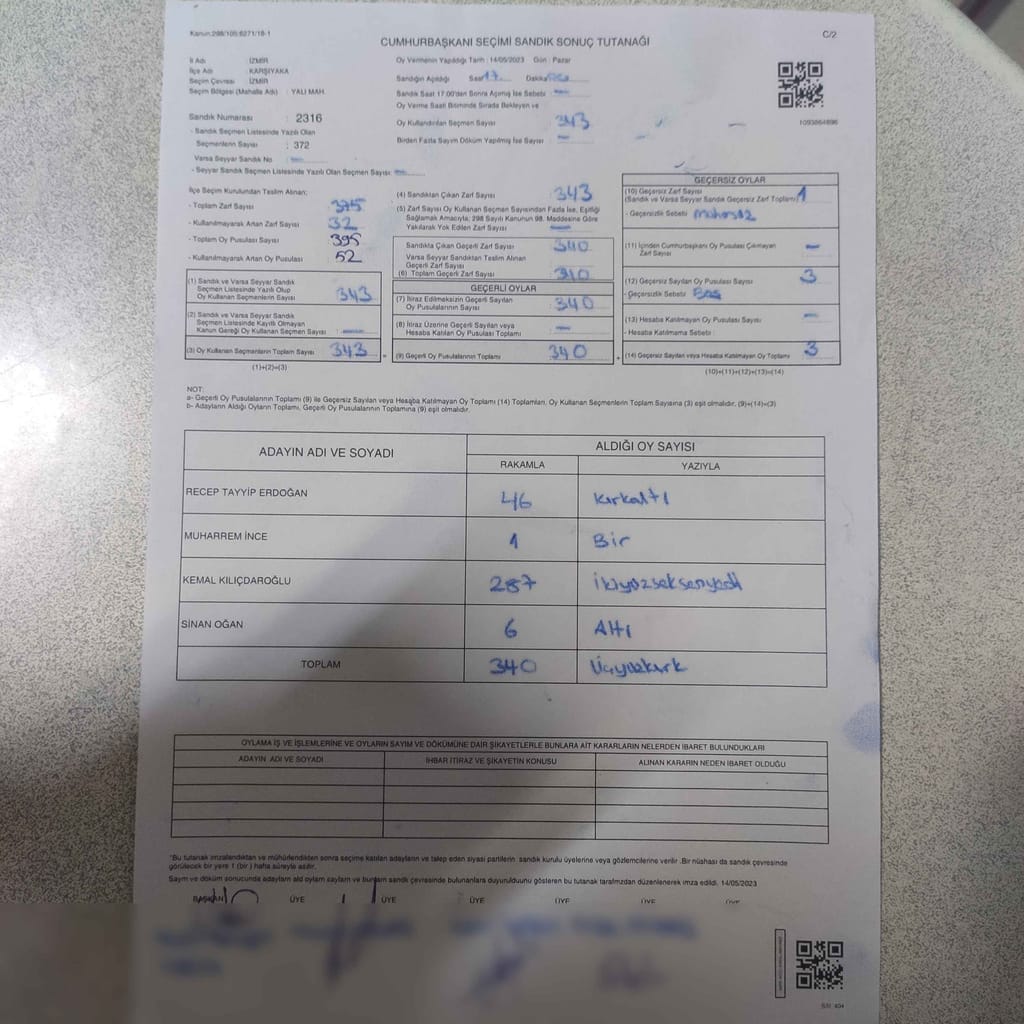 Kanun:298/105;6271/18-1
C/2
CUMHURBAŞKANI SEÇİMİ SANDIK SONUÇ TUTANAĞI
İl Adı : İZMİR
İlçe Adı : KARŞIYAKA
Seçim Çevresi : İZMİR
Seçim Bölgesi (Mahalle Adı) : YALI MAH.
Sandık Numarası : 2316
- Sandık Seçmen Listesinde Yazılı Olan
Seçmenlerin Sayısı : 372
Varsa Seyyar Sandık No : —
- Seyyar Sandık Seçmen Listesinde Yazılı Olan Seçmen Sayısı: —
Oy Vermenin Yapıldığı Tarih : 14/05/2023 Gün : Pazar
Sandığın Açıldığı Saat 17 Dakika
Sandık Saat 17:00'den Sonra Açılmış İse Sebebi : —
Oy Verme Saati Bitiminde Sırada Bekleyen ve
Oy Kullandırılan Seçmen Sayısı : 343
Birden Fazla Sayım Döküm Yapılmış İse Sayısı : —
1093864896
İlçe Seçim Kurulundan Teslim Alınan:
- Toplam Zarf Sayısı : 375
- Kullanılmayarak Artan Zarf Sayısı : 32
- Toplam Oy Pusulası Sayısı : 395
- Kullanılmayarak Artan Oy Pusulası : 52
(1) Sandık ve Varsa Seyyar Sandık
Seçmen Listesinde Yazılı Olup
Oy Kullanan Seçmenlerin Sayısı : 343
(2) Sandık ve Varsa Seyyar Sandık
Seçmen Listesinde Kayıtlı Olmayan
Kanun Gereği Oy Kullanan Seçmen Sayısı : —
(3) Oy Kullanan Seçmenlerin Toplam Sayısı : 343
(1)+(2)=(3)
(4) Sandıktan Çıkan Zarf Sayısı : 343
(5) Zarf Sayısı Oy Kullanan Seçmen Sayısından Fazla İse, Eşitliği
Sağlamak Amacıyla, 298 Sayılı Kanunun 98. Maddesine Göre
Yakılarak Yok Edilen Zarf Sayısı : —
Sandıkta Çıkan Geçerli Zarf Sayısı : 340
Varsa Seyyar Sandıktan Teslim Alınan
Geçerli Zarf Sayısı :
(6) Toplam Geçerli Zarf Sayısı : 310
GEÇERLİ OYLAR
(7) İtiraz Edilmeksizin Geçerli Sayılan
Oy Pusulalarının Sayısı : 340
(8) İtiraz Üzerine Geçerli Sayılan veya
Hesaba Katılan Oy Pusulası Toplamı : —
(9) Geçerli Oy Pusulalarının Toplamı : 340
GEÇERSİZ OYLAR
(10) Geçersiz Zarf Sayısı
(Sandık ve Varsa Seyyar Sandık Geçersiz Zarf Toplamı) : 1
- Geçersizlik Sebebi : mühürsüz
(11) İçinden Cumhurbaşkanı Oy Pusulası Çıkmayan
Zarf Sayısı : —
(12) Geçersiz Sayılan Oy Pusulası Sayısı : 3
- Geçersizlik Sebebi : Boş
(13) Hesaba Katılmayan Oy Pusulası Sayısı : —
- Hesaba Katılmama Sebebi :
(14) Geçersiz Sayılan veya Hesaba Katılmayan Oy Toplamı : 3
(10)+(11)+(12)+(13)=(14)
NOT:
a- Geçerli Oy Pusulalarının Toplamı (9) ile Geçersiz Sayılan veya Hesaba Katılmayan Oy Toplamı (14) Toplamları, Oy Kullanan Seçmenlerin Toplam Sayısına (3) eşit olmalıdır. (9)+(14)=(3)
b- Adayların Aldığı Oyların Toplamı, Geçerli Oy Pusulalarının Toplamına (9) eşit olmalıdır.
ADAYIN ADI VE SOYADI ALDIĞI OY SAYISI
RAKAMLA YAZIYLA
RECEP TAYYİP ERDOĞAN 46 kırkaltı
MUHARREM İNCE 1 Bir
KEMAL KILIÇDAROĞLU 287 ikiyüzseksenyedi
SİNAN OĞAN 6 Altı
TOPLAM 340 Üçyüzkırk
OYLAMA İŞ VE İŞLEMLERİNE VE OYLARIN SAYIM VE DÖKÜMÜNE DAİR ŞİKAYETLERLE BUNLARA AİT KARARLARIN NELERDEN İBARET BULUNDUKLARI
ADAYIN ADI VE SOYADI İHBAR İTİRAZ VE ŞİKAYETİN KONUSU ALINAN KARARIN NEDEN İBARET OLDUĞU
"Bu tutanak imzalandıktan ve mühürlendikten sonra seçime katılan adayların ve talep eden siyasi partilerin sandık kurulu üyelerine veya gözlemcilerine verilir. Bir nüshası da sandık çevresinde
görülecek bir yere 1 (bir) hafta süreyle asılır.
Sayım ve döküm sonucunda adayların ald oyların sayıları ve bunların sandık çevresinde bulunanlara duyurulduunu gösteren bu tutanak tarafımızdan düzenlenerek imza edildi. 14/05/2023
BAŞKAN ÜYE ÜYE ÜYE ÜYE ÜYE ÜYE